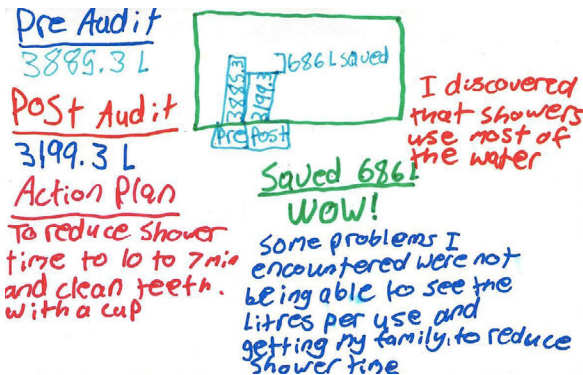 Pre Audit
3885.3 L
Post Audit
3199.3 L
Action Plan
To reduce shower
time to 10 to 7 min
and clean teeth.
with a cup
3885.3
3199.3
686L saved
Pre Post
Saved 686L
WOW!
I discovered
that showers
use most of
the water
Some problems I
encountered were not
being able to see the
Litres per use and
getting my family to reduce
shower time